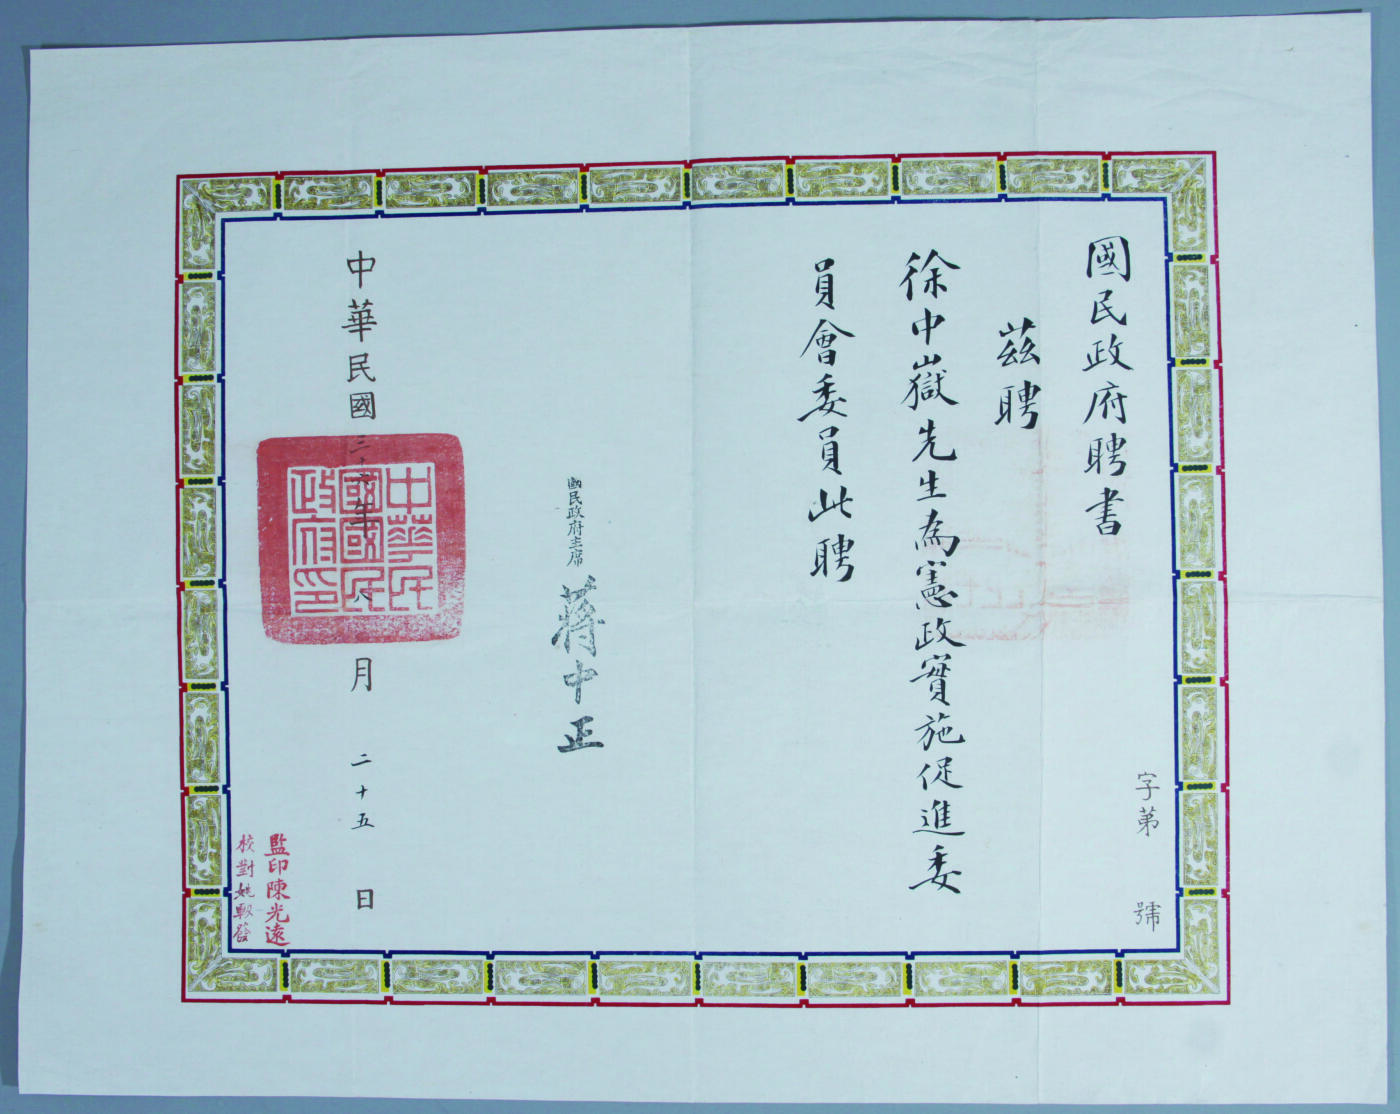 國民政府聘書
字第 號
茲聘
徐中嶽先生為憲政實施促進委
員會委員此聘
國民政府主席 蔣中正
中華民國三十六年 八 月 二十五 日
中華民
國國民
政府印
監印陳光遠
校對姚毅發